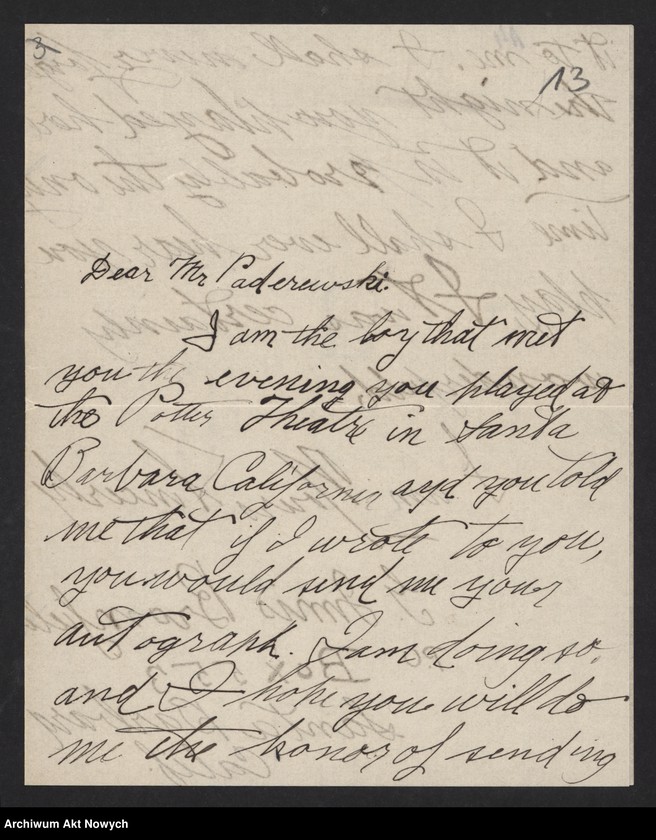 3
13
Dear Mr Paderewski.
I am the boy that met
you the evening you played at
the Potter Theatre in Santa
Barbara California and you told
me that if I wrote to you,
you would send me your
autograph. I am doing so.
and I hope you will do
me the honor of sending
Archiwum Akt Nowych